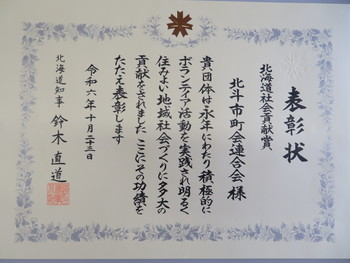 表彰状
北海道社会貢献賞
北斗市町会連合会 様
貴団体は永年にわたり積極的に
ボランティア活動を実践され明るく
住みよい地域社会づくりに多大の
貢献をされました ここにその功績を
たたえ表彰します
令和六年十月二十三日
北海道知事 鈴木直道